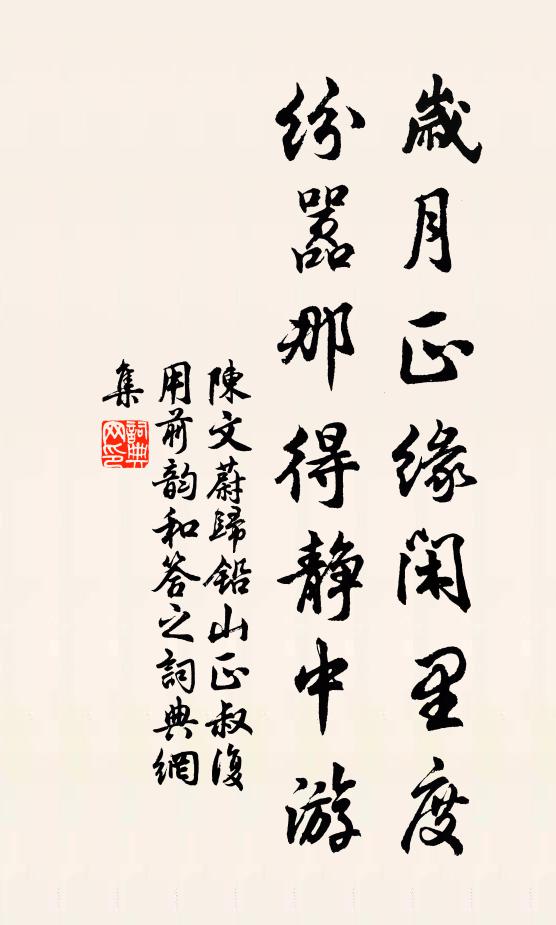 歲月正緣閑里度
紛嚣那得静中游
陳文蔚歸鉛山正叔復
用前韵和答之詞典網
集
詞典
网印